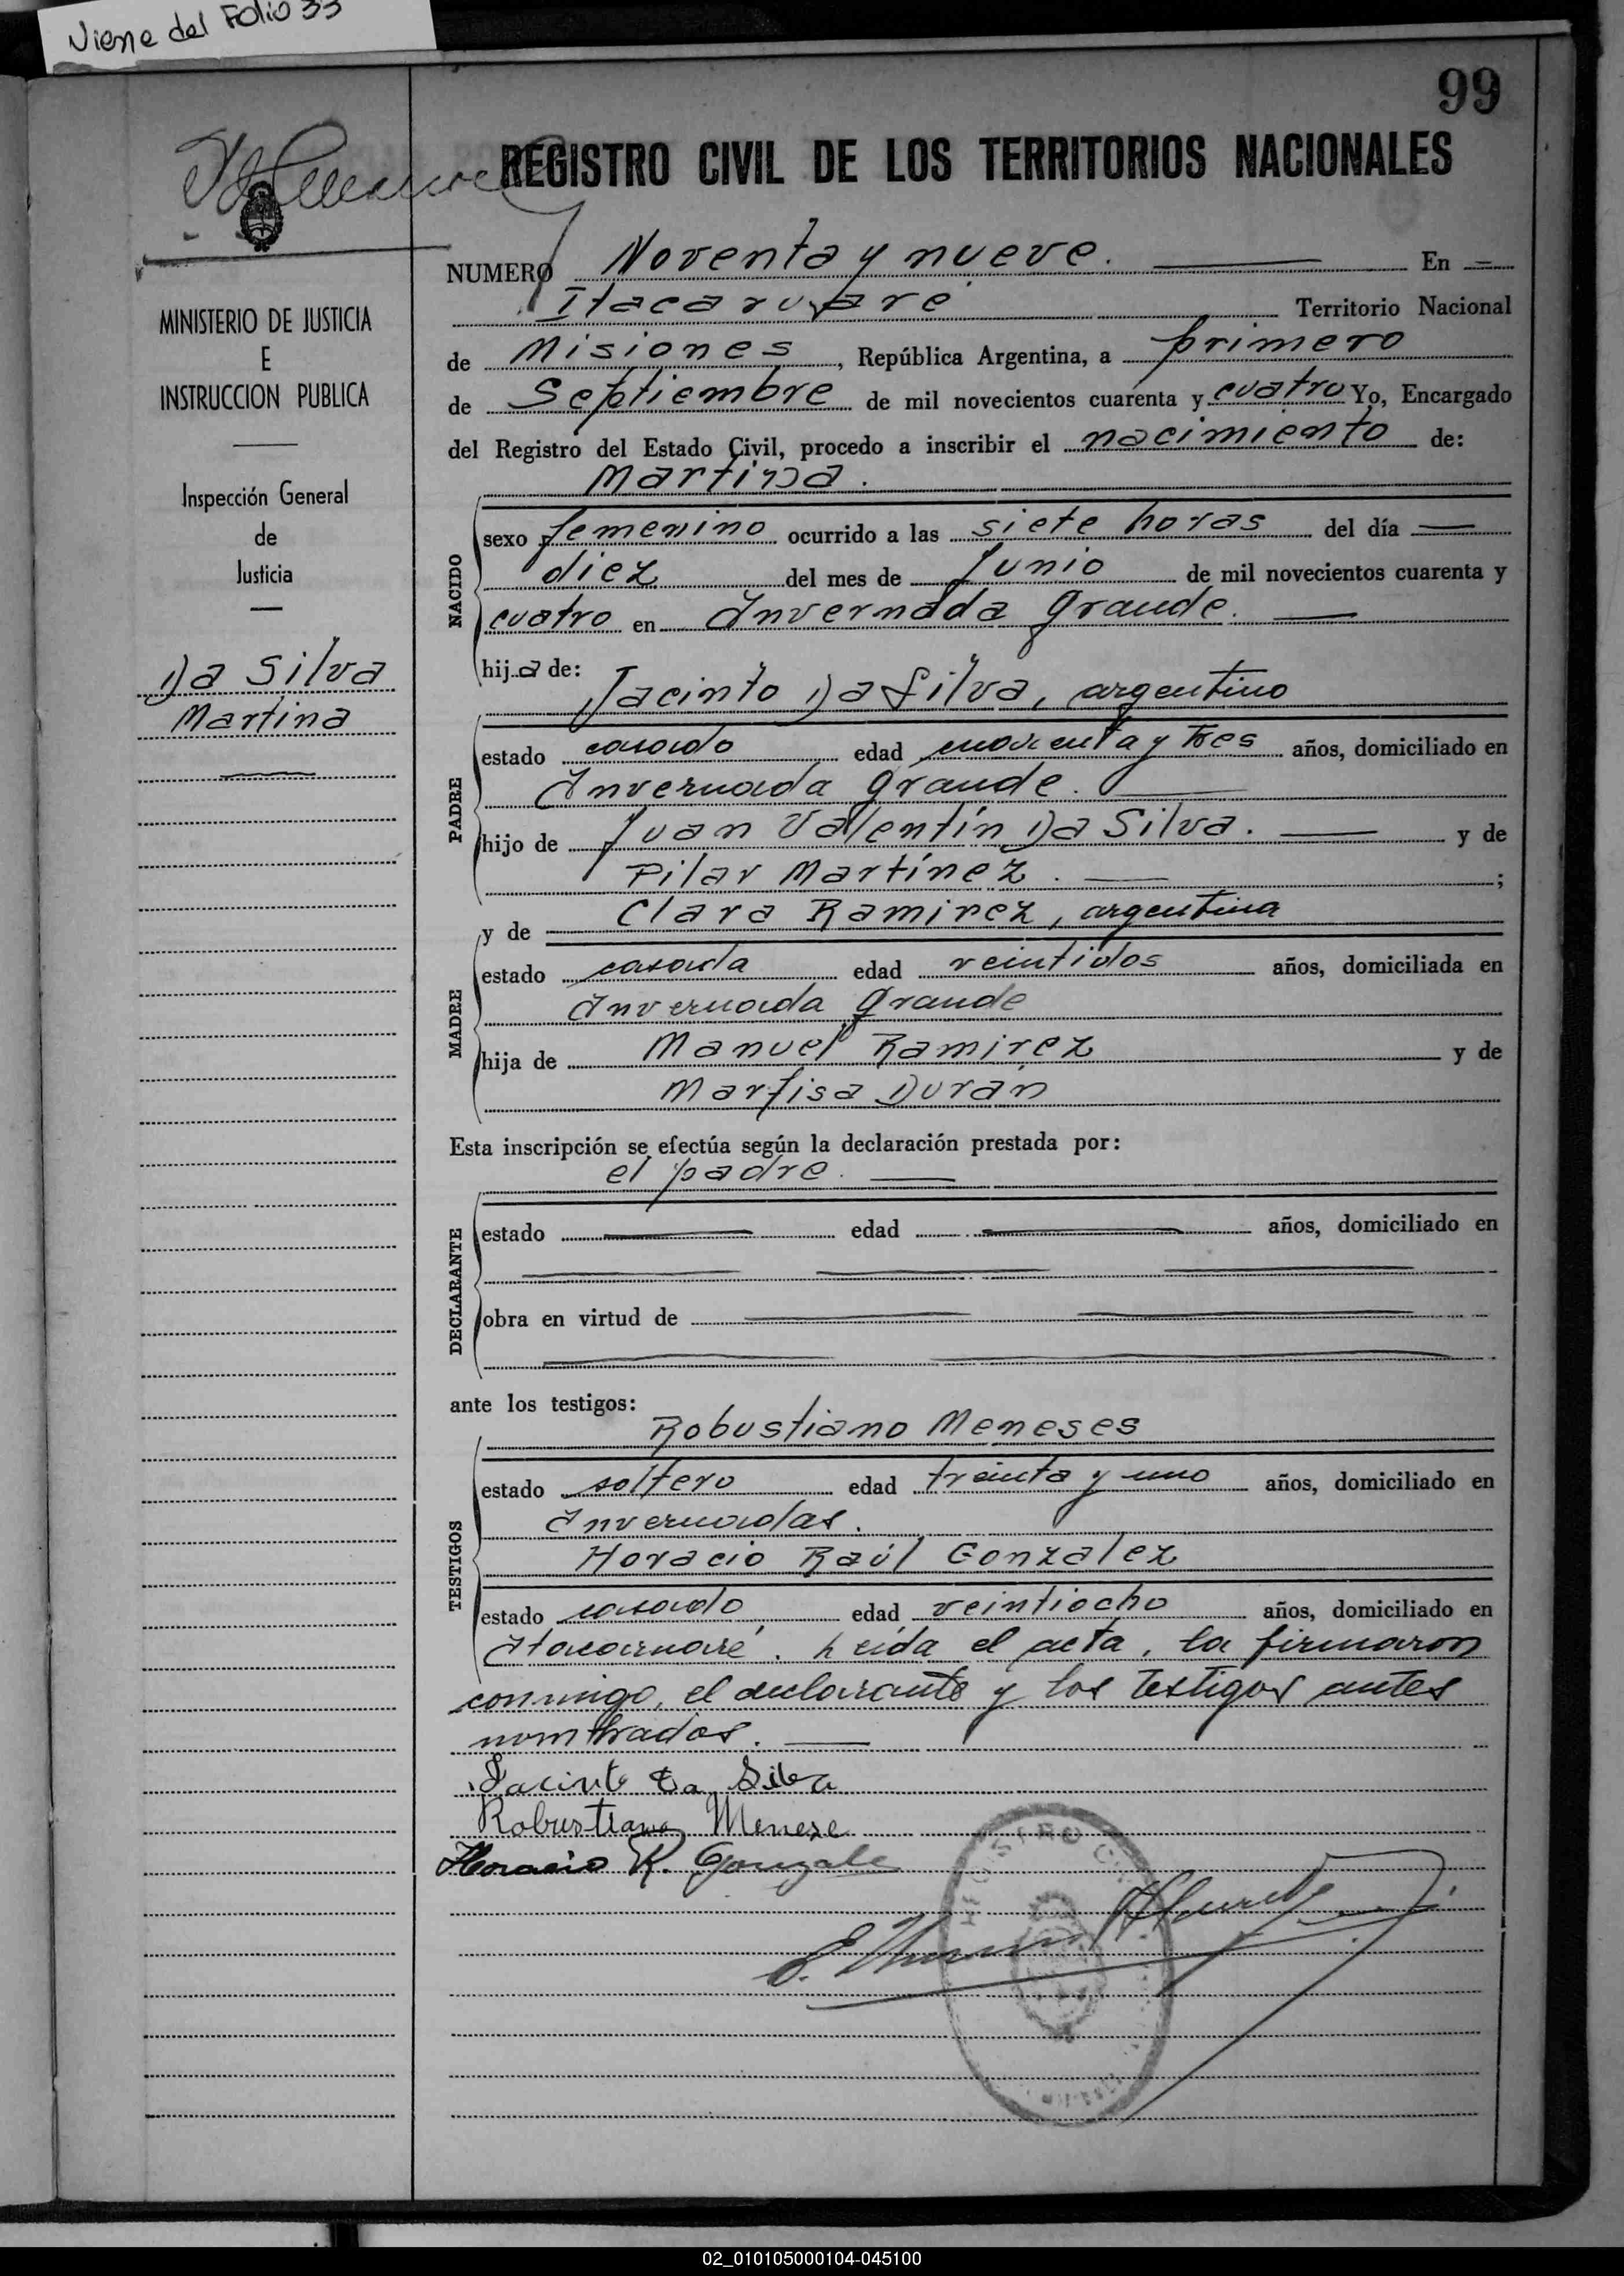 Viene del Folio 33
99
REGISTRO CIVIL DE LOS TERRITORIOS NACIONALES
NUMERO Noventa y nueve. En
Itacaruaré Territorio Nacional
de Misiones, República Argentina, a primero
de Septiembre de mil novecientos cuarenta y cuatro Yo, Encargado
del Registro del Estado Civil, procedo a inscribir el nacimiento de:
Martina.
MINISTERIO DE JUSTICIA
E
INSTRUCCION PUBLICA
Inspección General
de
Justicia
Da Silva
Martina
NACIDO
sexo femenino ocurrido a las siete horas del día
diez del mes de Junio de mil novecientos cuarenta y
cuatro en Invernada Grande.
hija de:
Jacinto Da Silva, argentino
PADRE
estado casado edad cuarenta y tres años, domiciliado en
Invernada Grande.
hijo de Juan Valentín Da Silva. y de
Pilar Martínez. ;
y de Clara Ramirez, argentina
MADRE
estado casada edad veintidos años, domiciliada en
Invernada Grande
hija de Manuel Ramirez y de
Marfisa Durán
Esta inscripción se efectúa según la declaración prestada por:
el padre.
DECLARANTE
estado edad años, domiciliado en
obra en virtud de
ante los testigos:
Robustiano Meneses
TESTIGOS
estado soltero edad treinta y uno años, domiciliado en
Invernadas.
Horacio Raúl Gonzalez
estado casado, edad veintiocho años, domiciliado en
Itacaruaré. Leída el acta, la firmaron
conmigo, el declarante y los testigos antes
nombrados.
Jacinto Da Silva
Robustiano Menese
Horacio R. Gonzale
REGISTRO
02_010105000104-045100